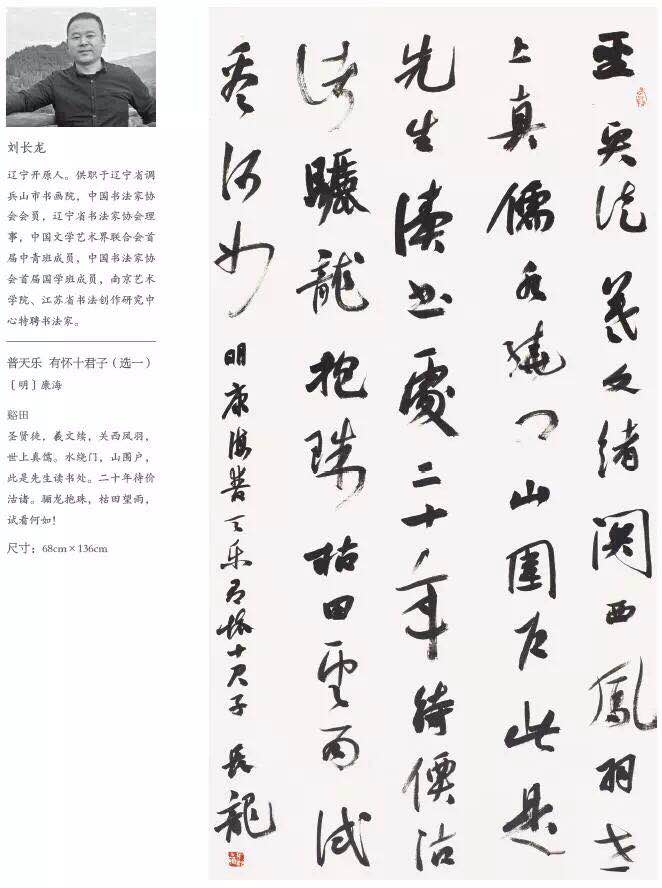 刘长龙
辽宁开原人。供职于辽宁省调
兵山市书画院，中国书法家协
会会员，辽宁省书法家协会理
事，中国文学艺术界联合会首
届中青班成员，中国书法家协
会首届国学班成员，南京艺术
学院、江苏省书法创作研究中
心特聘书法家。
普天乐 有怀十君子（选一）
［明］康海
谿田
圣贤徒，羲文续，关西凤羽，
世上真儒。水绕门，山围户，
此是先生读书处。二十年待价
沽诸。骊龙抱珠，枯田望雨，
试看何如！
尺寸：68cm×136cm
聖賢徒羲文緒関西鳳羽世
上真儒水繞門山圍户此是
先生讀書處二十年待價沽
諸驪龍抱珠枯田望雨試
看何如 明康海普天乐有怀十君子 長龍